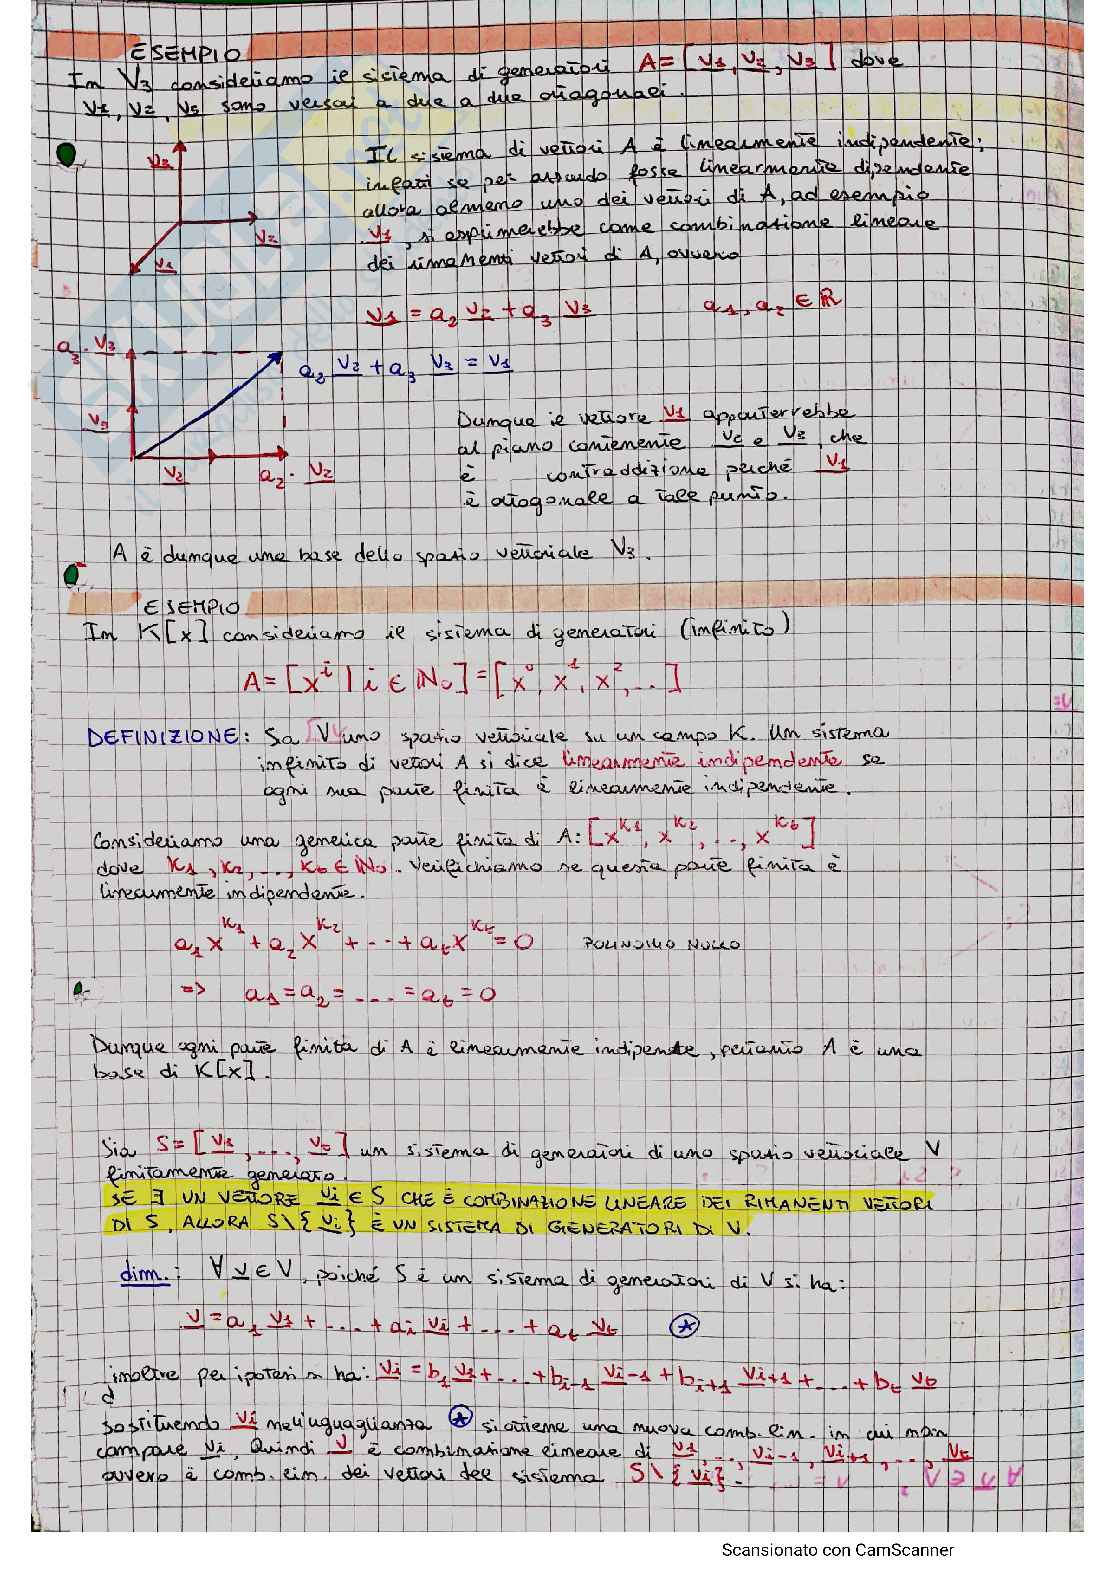 ESEMPIO
In V3 consideriamo il sistema di generatori A=[v1, v2, v3] dove
v1, v2, v3 sono versori a due a due ortogonali.
Il sistema di vettori A è linearmente indipendente;
infatti se per assurdo fosse linearmente dipendente
allora almeno uno dei vettori di A, ad esempio
v1, si esprimerebbe come combinazione lineare
dei rimanenti vettori di A, ovvero
v3
v2
v1
v1 = a2 v2 + a3 v3 a1, a2 ∈ ℝ
a3 · v3
a2 v2 + a3 v3 = v1
v3
v2
a2 · v2
Dunque il vettore v1 apparterrebbe
al piano contenente e v2, che
è contraddizione perché v1
è ortogonale a tale punto.
A è dunque una base dello spazio vettoriale V3.
ESEMPIO
In K[x] consideriamo il sistema di generatori (infinito)
A=[x^i | i ∈ N0] = [x^0, x^1, x^2, ...]
DEFINIZIONE: Sa V uno spazio vettoriale su un campo K. Un sistema
infinito di vettori A si dice linearmente indipendente se
ogni sua parte finita è linearmente indipendente.
Consideriamo una generica parte finita di A: [x^k1, x^k2, ..., x^kt]
dove k1, k2, ..., kt ∈ N0. Verifichiamo se questa parte finita è
linearmente indipendente.
a1 x^k1 + a2 x^k2 + ... + at x^kt = 0 POLINOMIO NULLO
=> a1 = a2 = .... = at = 0
Dunque ogni parte finita di A è linearmente indipendete, pertanto A è una
base di K[x].
Sia S=[v1, ..., vt] un sistema di generatori di uno spazio vettoriale V
finitamente generato.
SE ∃ UN VETTORE vi ∈ S CHE È COMBINAZIONE LINEARE DEI RIMANENTI VETTORI
DI S, ALLORA S\{vi} È UN SISTEMA DI GENERATORI DI V.
dim.: ∀ v ∈ V, poiché S è un sistema di generatori di V si ha:
v = a1 v1 + ... + ai vi + ... + at vt (*)
inoltre per ipotesi si ha: vi = b1 v1 + ... + bi-1 vi-1 + bi+1 vi+1 + ... + bt vt
sostituendo vi nell'uguaglianza (*) si ottiene una nuova comb. lin. in cui non
compare vi, Quindi v è combinazione lineare di v1, .., vi-1, vi+1, .., vt
ovvero è comb. lin. dei vettori del sistema S\{vi}.
Scansionato con CamScanner